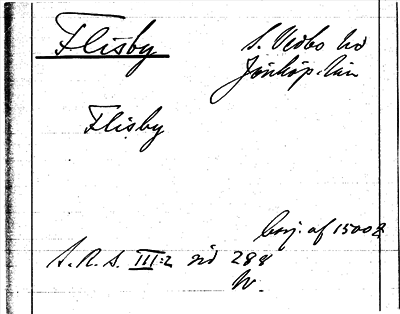 Flisby
S. Vedbo hd
Jönköp. län
Flisby
börj. af 1500 t
S. R. S. III:2 sid 288
W.